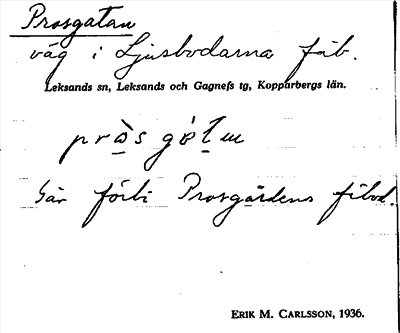 Prosgatan
väg i Ljusbodarna fäb.
Leksands sn, Leksands och Gagnefs tg, Kopparbergs län.
går förbi Prosgårdens fäbod.
ERIK M. CARLSSON, 1936.